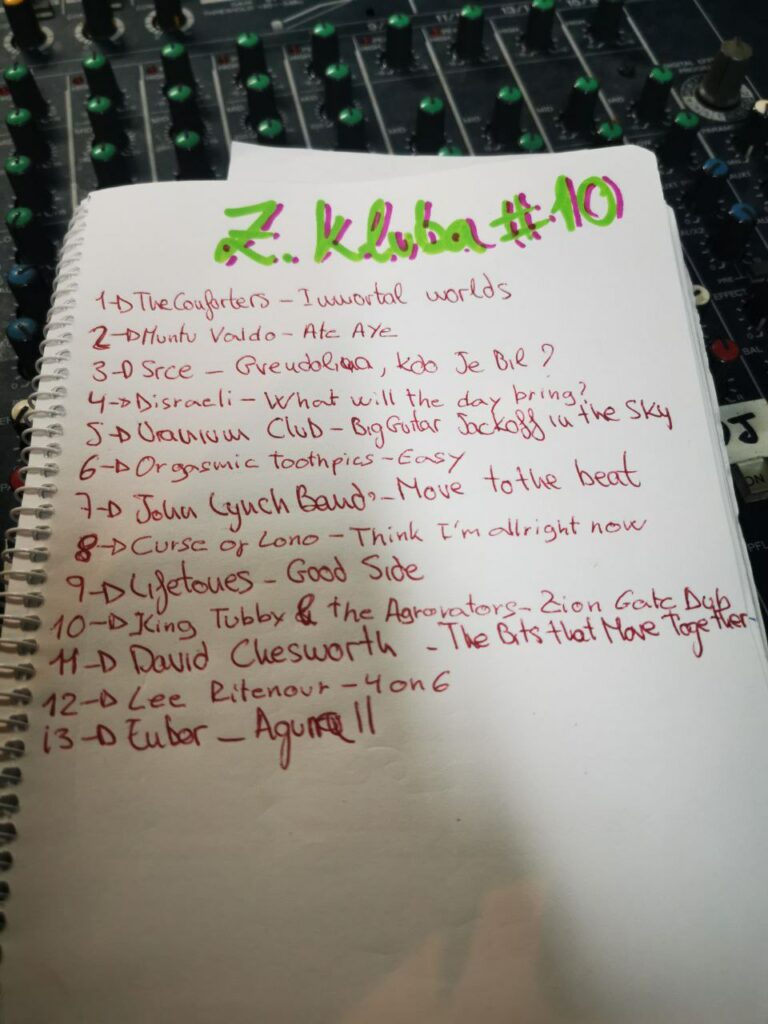 Z. Kluba #10
1→ The Conforters - Immortal worlds
2→ Muntu Valdo - Ate Aye
3→ Srce - Gvendolina, kdo Je Bil?
4→ Disraeli - What will the day bring?
5→ Uranium Club - Big Guitar Jackoff in the Sky
6→ Orgasmic toothpics - Easy
7→ John Lynch Band - Move to the beat
8→ Curse of Lono - Think I'm allright now
9→ Lifetones - Good Side
10→ King Tubby & the Agrovators - Zion Gate Dub
11→ David Chesworth - The Bits that Move Together
12→ Lee Ritenour - 4 on 6
13→ Euber -